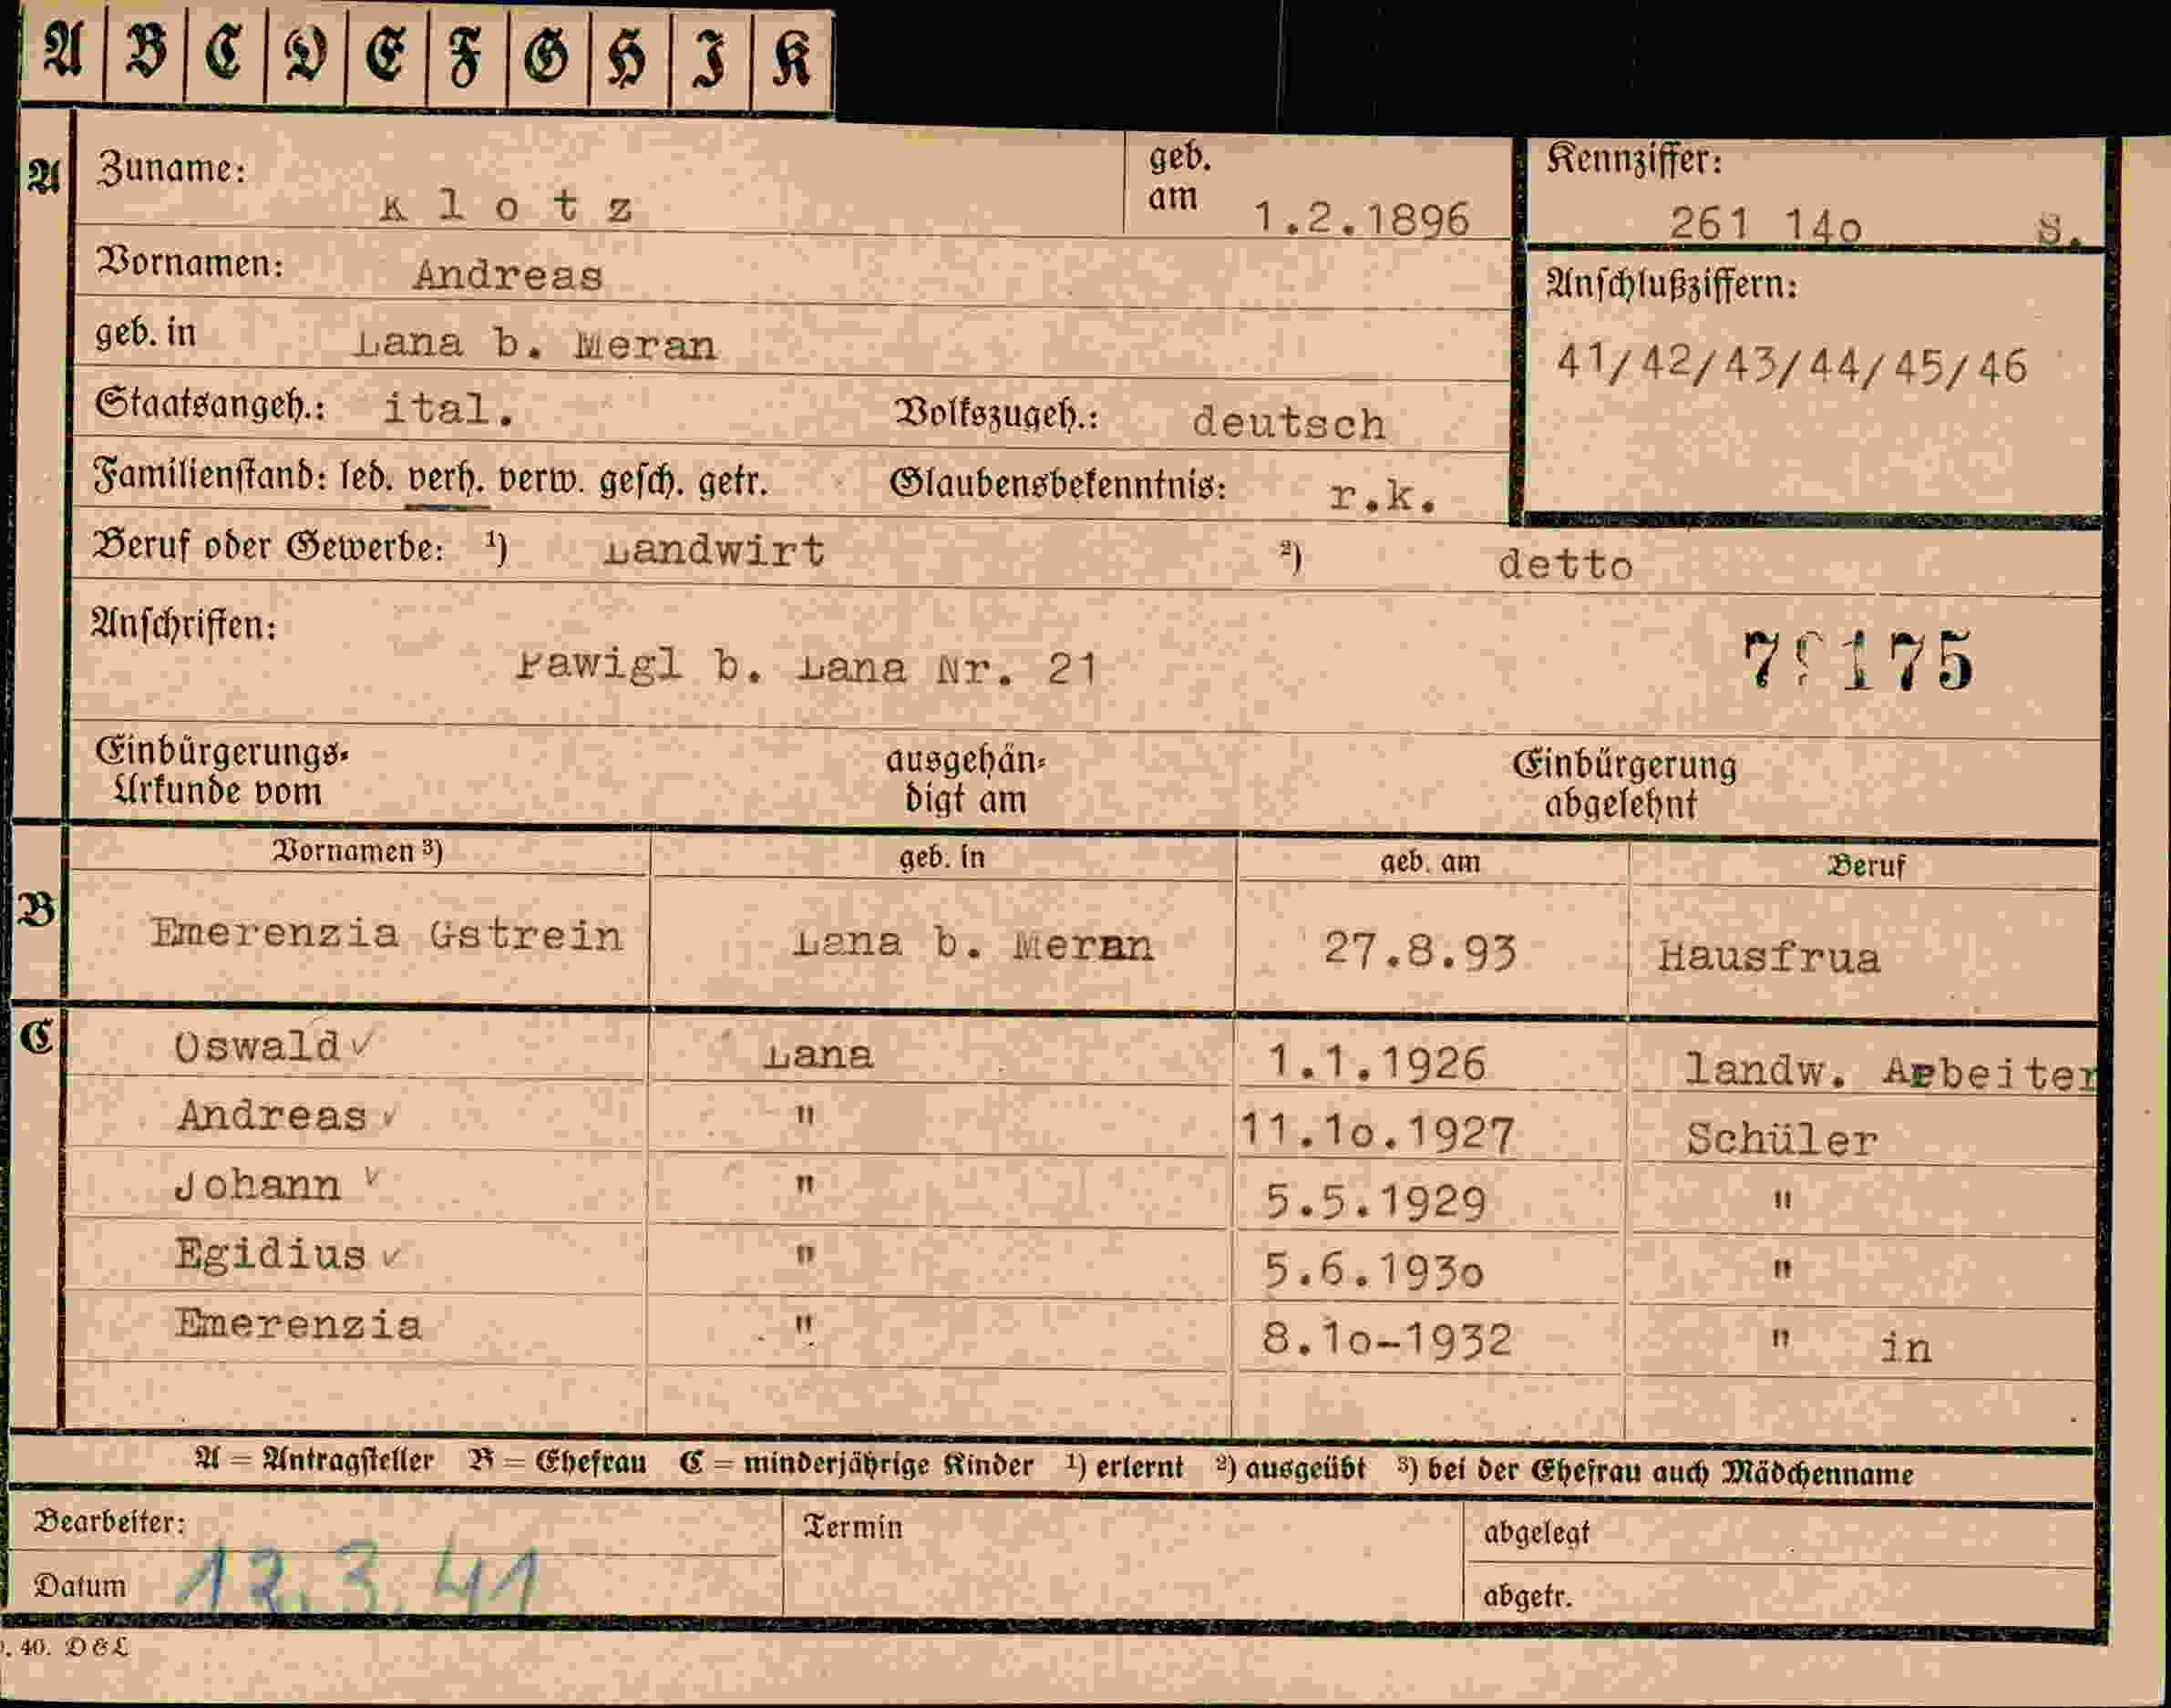 A B C D E F G H I K
A Zuname: Klotz geb. am 1.2.1896 Kennziffer: 261 14o S.
Vornamen: Andreas Anschlußziffern:
geb. in Lana b. Meran 41/42/43/44/45/46
Staatsangeh.: ital. Volkszugeh.: deutsch
Familienstand: led. verh. verw. gesch. getr. Glaubensbekenntnis: r.k.
Beruf oder Gewerbe: ¹) Landwirt ²) detto
Anschriften: Pawigl b. Lana Nr. 21
Einbürgerungs-Urkunde vom ausgehändigt am Einbürgerung abgelehnt
Vornamen ³) geb. in geb. am Beruf
B Emerenzia Gstrein Lana b. Meran 27.8.93 Hausfrua
C Oswald ✓ Lana 1.1.1926 landw. Arbeiter
Andreas ✓ " 11.1o.1927 Schüler
Johann ✓ " 5.5.1929 "
Egidius ✓ " 5.6.193o "
Emerenzia " 8.1o-1932 " in
A = Antragsteller B = Ehefrau C = minderjährige Kinder ¹) erlernt ²) ausgeübt ³) bei der Ehefrau auch Mädchenname
Bearbeiter: Termin abgelegt
Datum 12.3.41 abgetr.
. 40. DEL